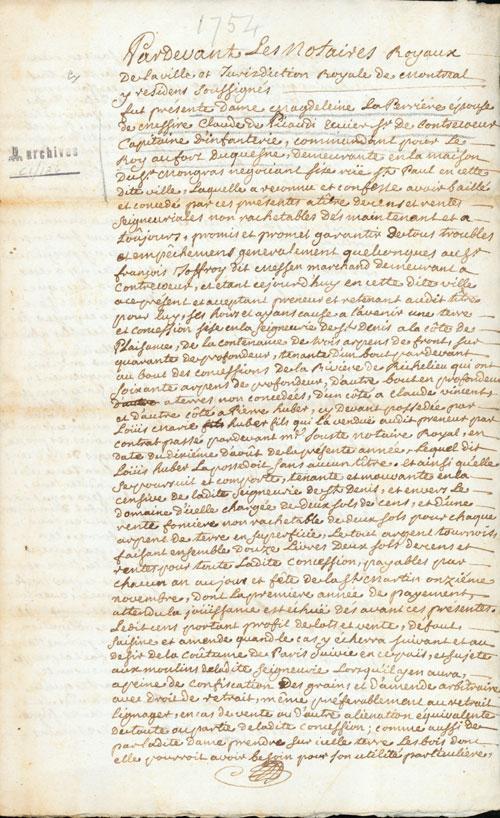 1754
Pardevant Les Notaires Royaux
De la ville et Jurisdiction Royale de Montreal
y residens Soussignés
fut presente Dame Magdeleine La Perrière épouse
de Messire Claude de Pécaudi Ecuier Sr. de Contrecoeur
Capitaine d'infanterie, commandant pour le
Roy au fort Duquesne, demeurante en la maison
du Sr. Mongras négociant sise rüe St. Paul en cette
dite ville, Laquelle a reconnu et confessé avoir baillé
et concedé par ces presentes a titre de cens et rentes
Seigneuriales non rachetables des maintenant et a
toûjours, promis et promet garantir de tous troubles
et empêchemens generalement quelconques au Sr.
françois Joffroy dit marchand demeurant a
Contrecoeur, et étant ce jourd'huy en cette dite ville
a ce présent et acceptant preneur et retenant audit titre
pour Luy, ses hoirs et ayans cause a l'avenir une terre
et concession sise en la Seigneurie de St. Denis a la côte de
Plaisance, de la contenance de trois arpens de front, sur
quarante de profondeur, tenante d'un bout par devant
au bout des concessions de la Rivière de Richelieu qui ont
Soixante arpens de profondeur, d'autre bout en profondeur
a terres non concedées, d'un côté a Claude vincent,
et d'autre côté a Pierre huber, cy devant possedée par
Loüis Marie huber fils qui l'a vendüe audit preneur par
contrat passé pardevant Me. Souste notaire Royal, en
date du dixième d'aoit de la présente année, Lequel dit
Loüis huber La possedoit sans aucun titre, et ainsi qu'elle
Se poursuit et comporte, tenante et mouvante en la
censive de ladite Seigneurie de St. Denis, et envers Le
domaine d'icelle chargée de deux sols de cens, et d'une
rente foncière non rachetable de deux sols pour chaque
arpent de terre en superficie, Le tout argent tournois,
faisant ensemble douze Livres deux sols de cens et
rentes pour toute Ladite concession, payables par
chacun an au jour et fête de la St. Martin onzième
novembre, dont la premiere année de payement
attendu la joüissance est échue dès avant ces presentes,
Lesdit cens portant profit de lots et vente, défaut
saisine et amende quand le cas y écherra suivant et au
desir de la Coûtume de Paris suivie en ce païs, et sujete
aux moulins de ladite Seigneurie Lorsqu'il y en aura,
a peine de confiscation des grains, et d'amende arbitraire
avec droit de retrait, même préférablement au retrait
Lignager, en cas de vente ou d'autre alienation équivalente
de toute ou partie de ladite concession; comme aussi de
par ladite dame prendre sur icelle terre Les bois dont
elle pourroit avoir besoin pour son utilité particuliere,
archives